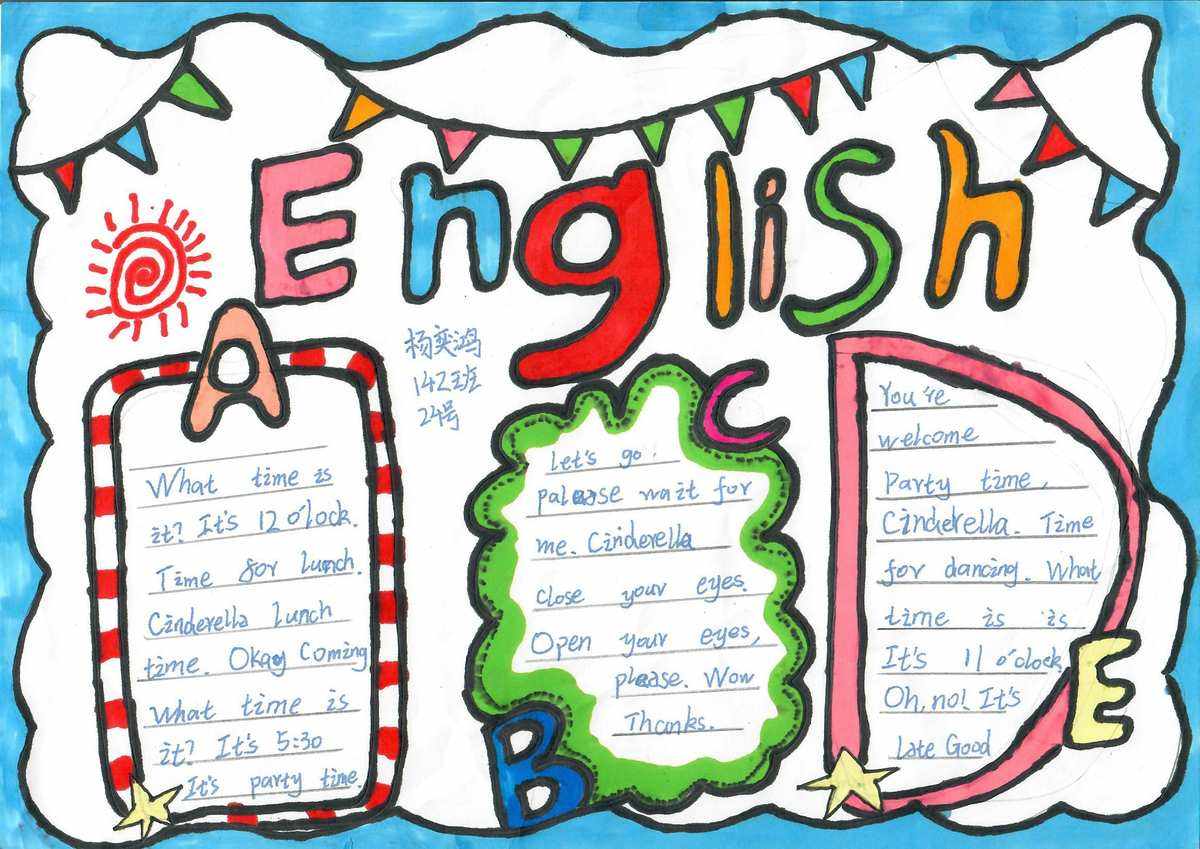 English
杨奕鸿
142班
24号
A
What time is
it? It's 12 o'lock.
Time for lunch.
Cinderella lunch
time. Okay Coming
What time is
it? It's 5:30
It's party time.
C
Let's go.
palease wait for
me. Cinderella
close your eyes.
Open your eyes,
please. Wow
Thanks.
B
D
You're
welcome
Party time,
Cinderella. Time
for dancing. What
time is is
It's 11 o'clock
Oh, no! It's
Late Good
E